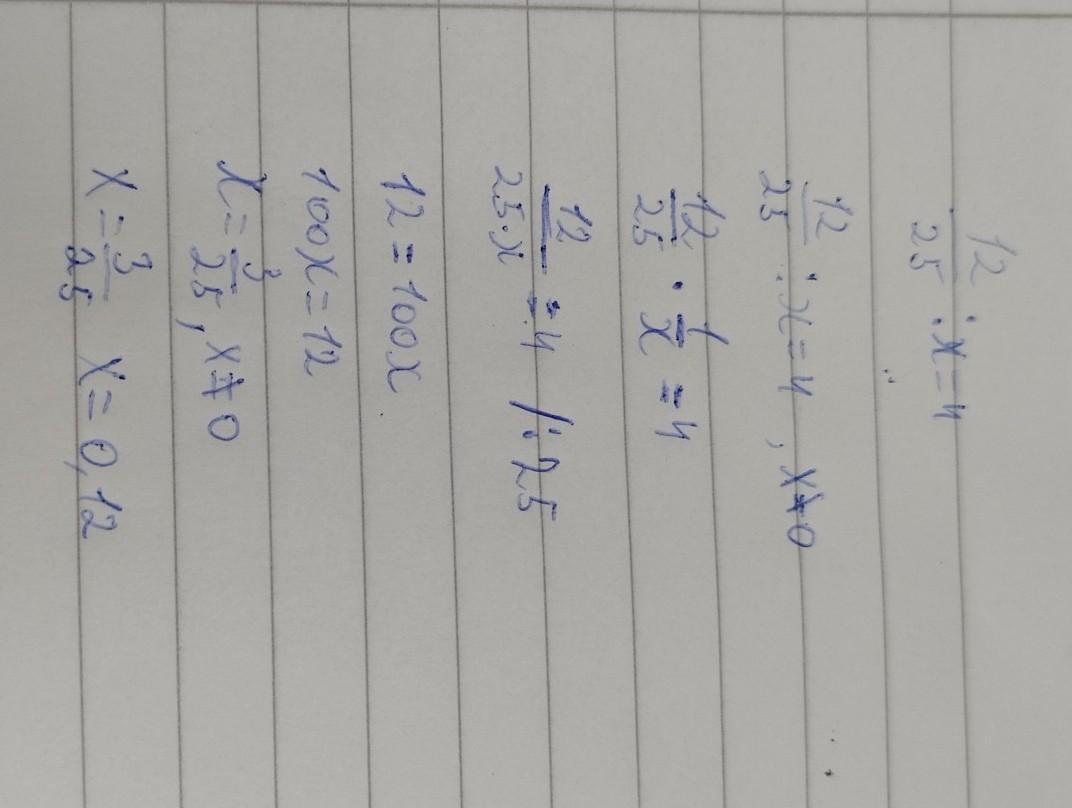 12/25 : x = 4
12/25 : x = 4 , x ≠ 0
12/25 · 1/x = 4
12/(25·x) = 4 /: 25
12 = 100x
100x = 12
x = 3/25 , x ≠ 0
x = 3/25 x = 0,12